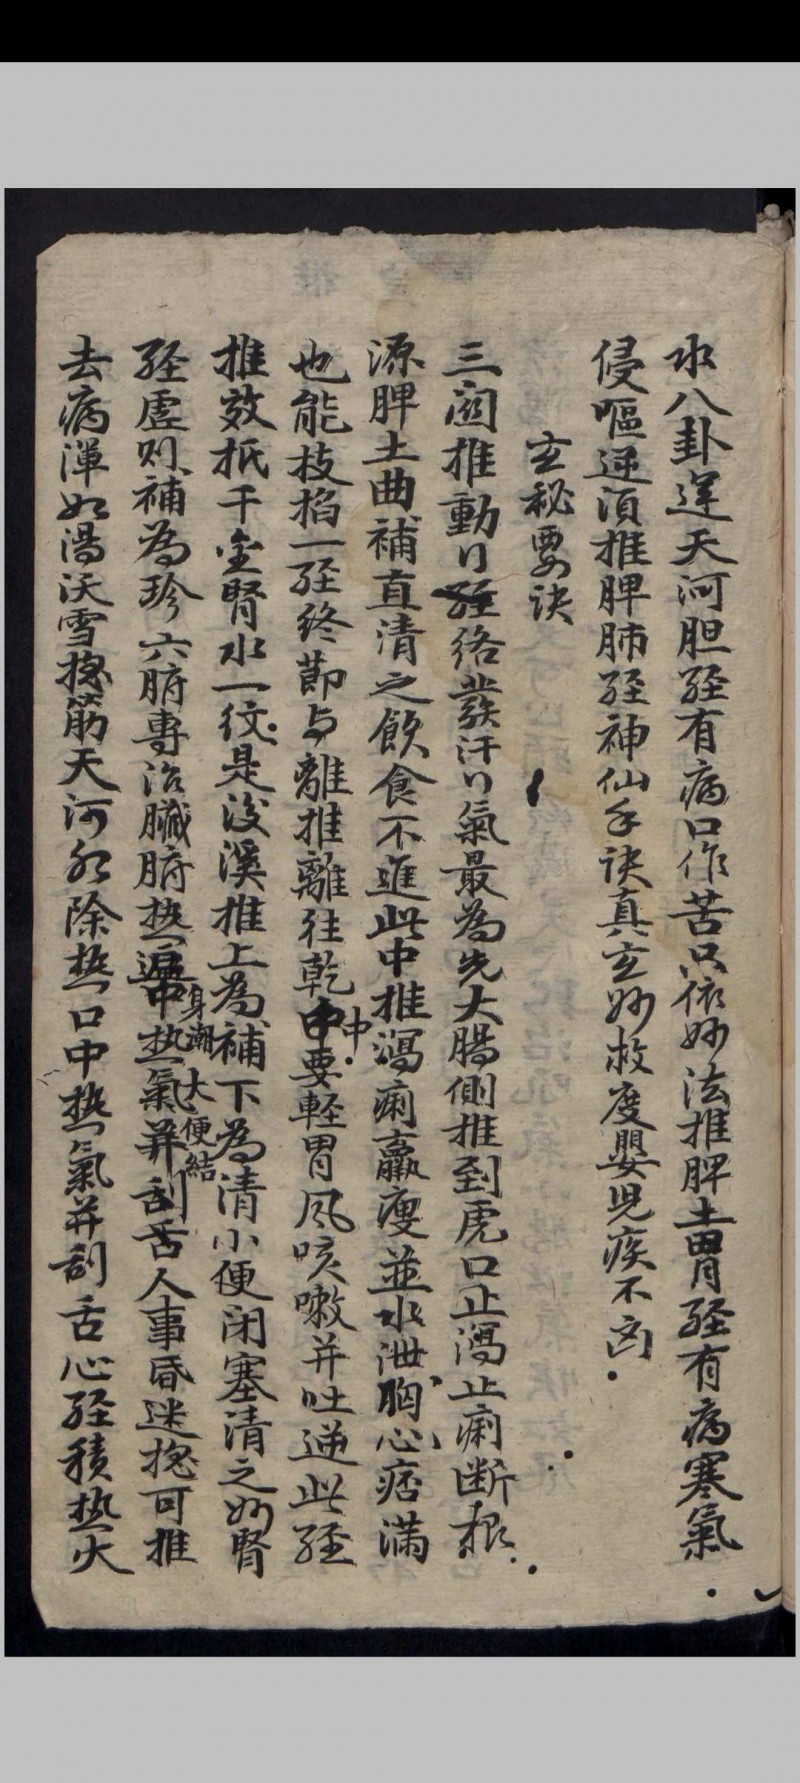 水八卦運天河胆経有病口作苦只依妙法推脾土胃経有病寒氣
侵嘔逆須推脾肺経神仙手訣真玄妙救度嬰児疾不凶
玄秘要訣
三関推動行経絡發汗行氣最為先大腸側推到虎口止瀉止痢断根
源脾土曲補直清之飲食不進此中推瀉痢羸瘦並水泄胸心痞滿
也能技掐一経終節与離推離往乾中中要輕胃风咳嗽并吐逆此経
推效抵千金腎水一紋是後溪推上為補下為清小便闭塞清之妙腎
経虚则補為珍六腑專治臟腑热遍中身潮热氣大便結并刮舌人事昏迷揔可推
去病渾如湯沃雪揔筋天河水除热口中热氣并刮舌心経積热火